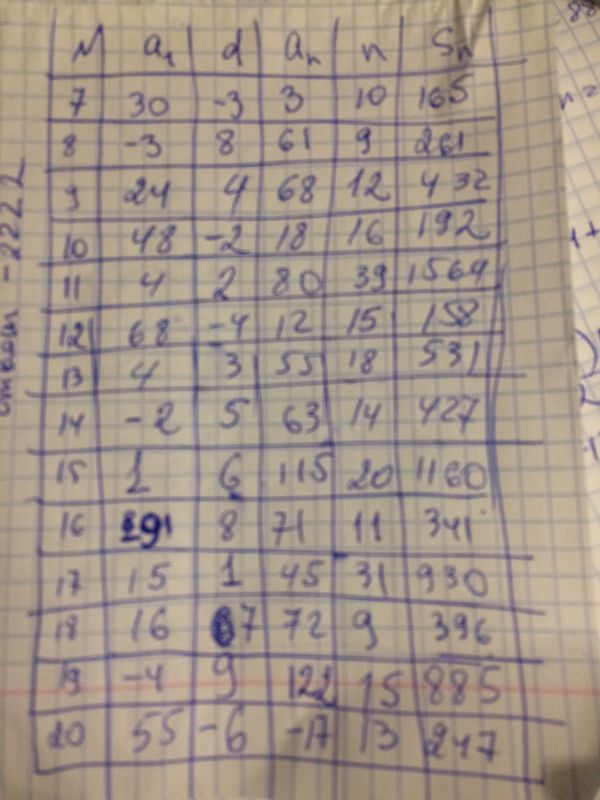 N a₁ d aₙ n Sₙ
7 30 -3 3 10 165
8 -3 8 61 9 261
9 24 4 68 12 432
10 48 -2 18 16 192
11 4 2 80 39 1564
12 68 -4 12 15 158
13 4 3 55 18 531
14 -2 5 63 14 427
15 1 6 115 20 1160
16 -91 8 71 11 341
17 15 1 45 31 930
18 16 7 72 9 396
19 -4 9 122 15 885
20 55 -6 -17 13 247
ответ -222 2
n =